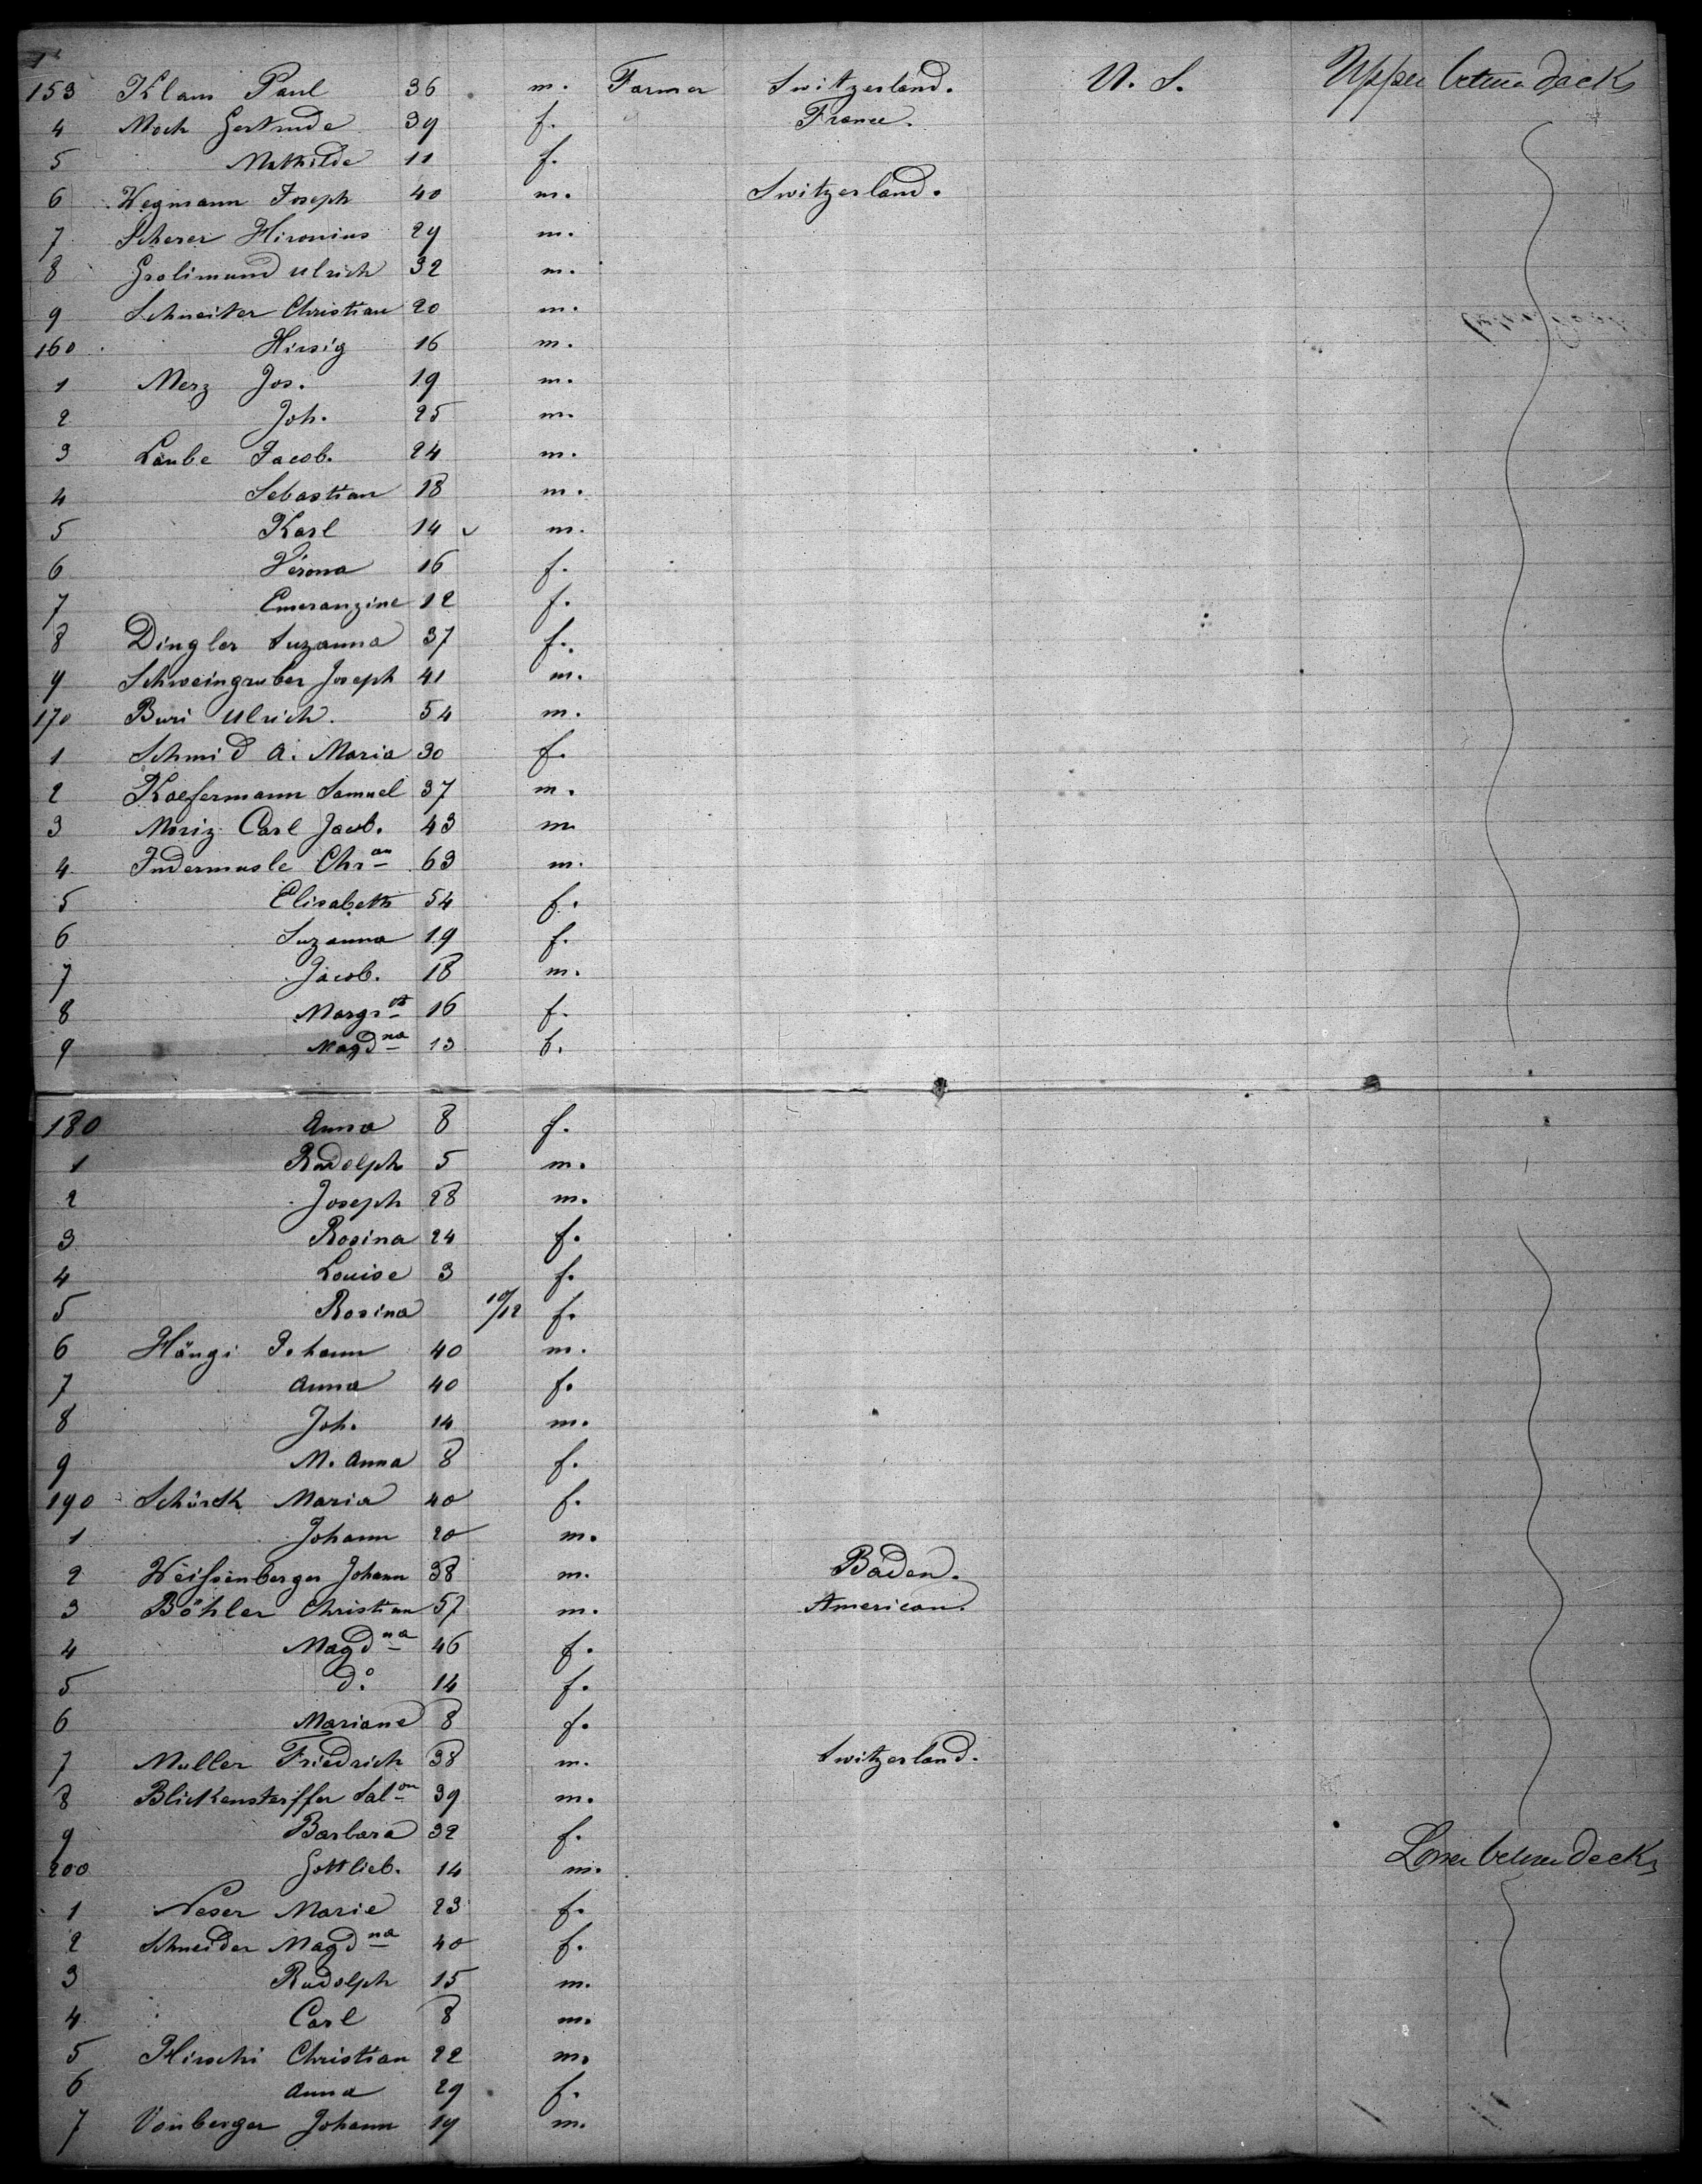 153 Klaus Paul 36 m. Farmer Switzerland. U. S. Upper betwn decks
4 Moch Gertrude 39 f. France.
5 Mathilde 11 f.
6 Wegmann Joseph 40 m. Switzerland.
7 Scherer Hironius 29 m.
8 Grolimund Ulrich 32 m.
9 Schneiter Christian 20 m.
160 Hirsig 16 m.
1 Merz Jos. 19 m.
2 Joh. 25 m.
3 Laube Jacob. 24 m.
4 Sebastian 18 m.
5 Karl 14 m.
6 Verona 16 f.
7 Emeranzine 12 f.
8 Dingler Suzanna 37 f.
9 Schweingruber Joseph 41 m.
170 Buri Ulrich. 54 m.
1 Schmid A. Maria 30 f.
2 Kaefermann Samuel 37 m.
3 Moriz Carl Jacob. 43 m.
4 Indermusle Chr an 63 m.
5 Elisabeth 54 f.
6 Suzanna 19 f.
7 Jacob. 18 m.
8 Margr et 16 f.
9 Magd na 13 f.
180 Anna 8 f.
1 Rudolph 5 m.
2 Joseph 28 m.
3 Rosina 24 f.
4 Louise 3 f.
5 Rosina 10/12 f.
6 Hängi Johann 40 m.
7 Anna 40 f.
8 Joh. 14 m.
9 M. Anna 8 f.
190 Schürck Maria 40 f.
1 Johann 20 m.
2 Weissenberger Johann 38 m. Baden.
3 Böhler Christian 57 m. American.
4 Magd na 46 f.
5 do. 14 f.
6 Mariane 8 f.
7 Muller Friedrich 38 m. Switzerland.
8 Blickenstorffer Sal on 39 m.
9 Barbara 32 f.
200 Gottlieb. 14 m. Lower betwen decks
1 Neser Marie 23 f.
2 Schneider Magd na 40 f.
3 Rudolph 15 m.
4 Carl 8 m.
5 Hirschi Christian 22 m.
6 Anna 29 f.
7 Vonberger Johann 19 m.